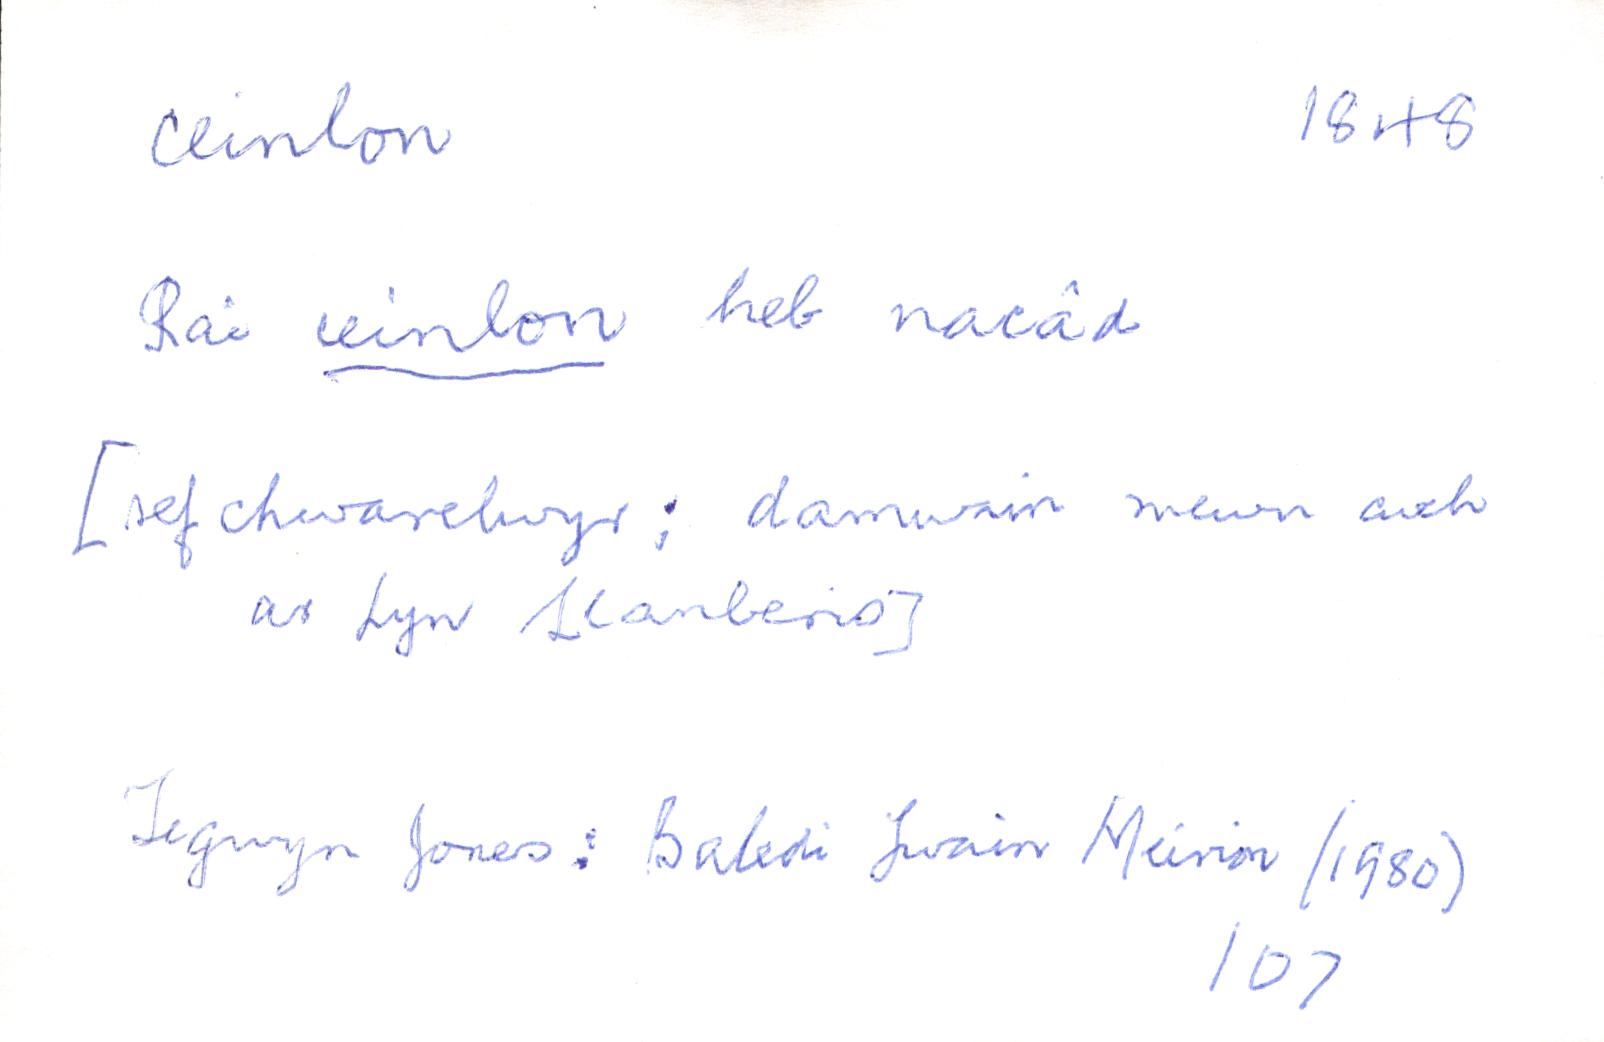 ceinlon 1848
Rai ceinlon heb nacâd
[sef chwarelwyr; damwain mewn cwch
ar Lyn Llanberis]
Tegwyn Jones: Baledi Ywain Meirion (1980)
107